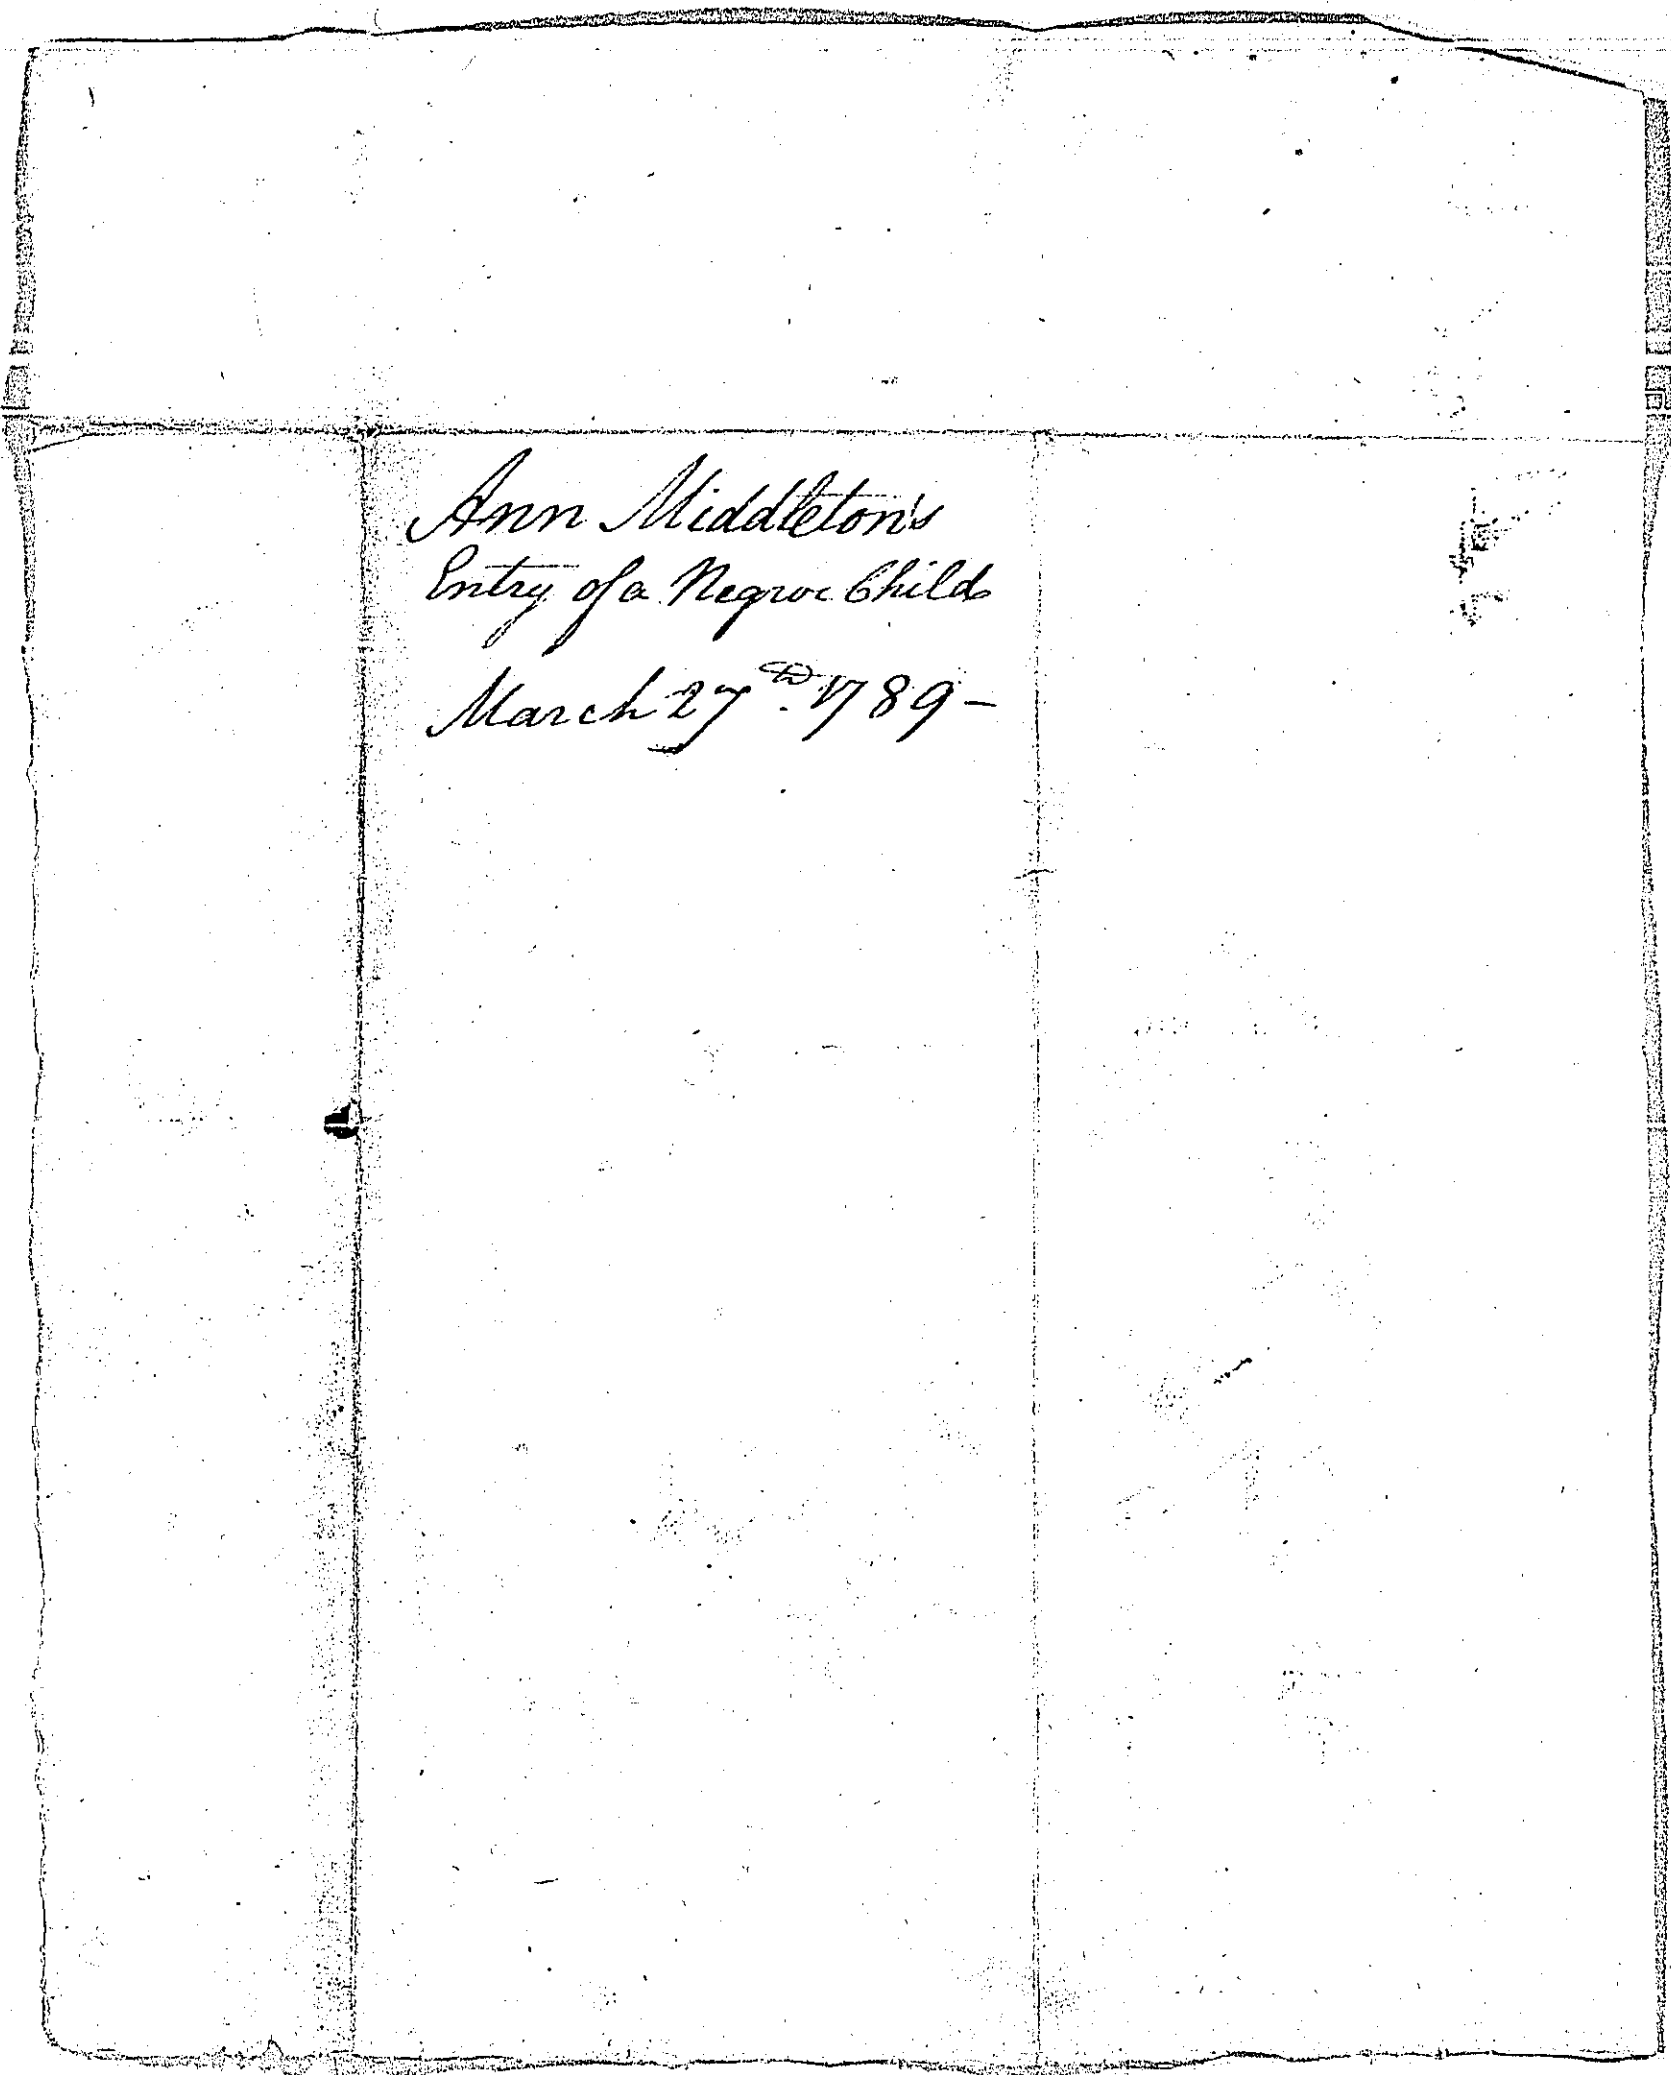 Ann Middleton's
Entry of a Negroe Child
March 27th. 1789 -